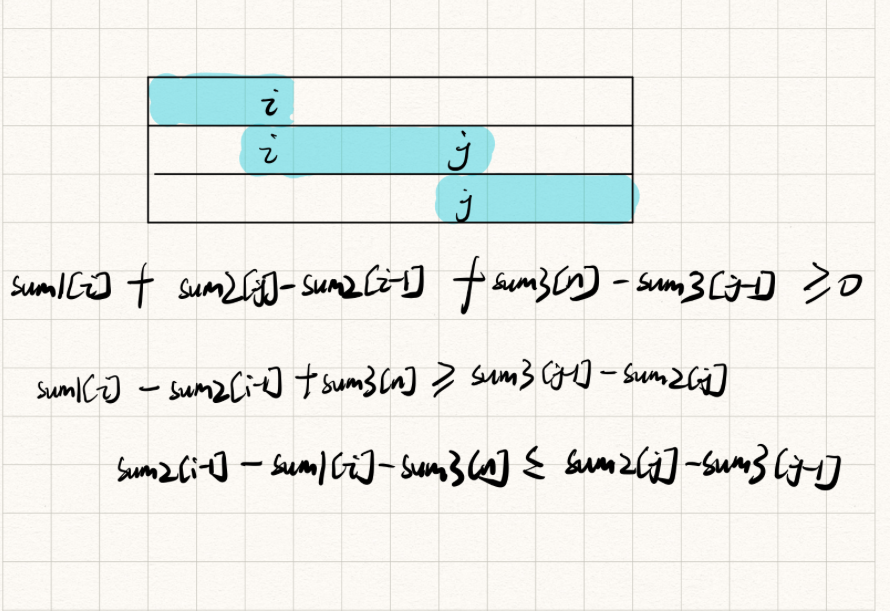 i
i j
j
sum1[i] + sum2[j]-sum2[i-1] + sum3[n] - sum3[j-1] ≥0
sum1[i] - sum2[i-1] + sum3[n] ≥ sum3[j-1] - sum2[j]
sum2[i-1] - sum1[i] - sum3[n] ≤ sum2[j] - sum3[j-1]